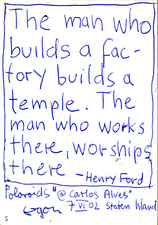 The man who
builds a fac-
tory builds a
temple. The
man who works
there, worships
there - Henry Ford
Poloroids "@ Carlos Alves"
7 VI 02 Staten Island